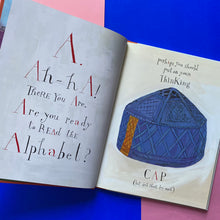 A.
Ah-hA!
There You Are.
Are you ready
to Read the
Alphabet?
perhaps you should
put on your
Thinking
CAP